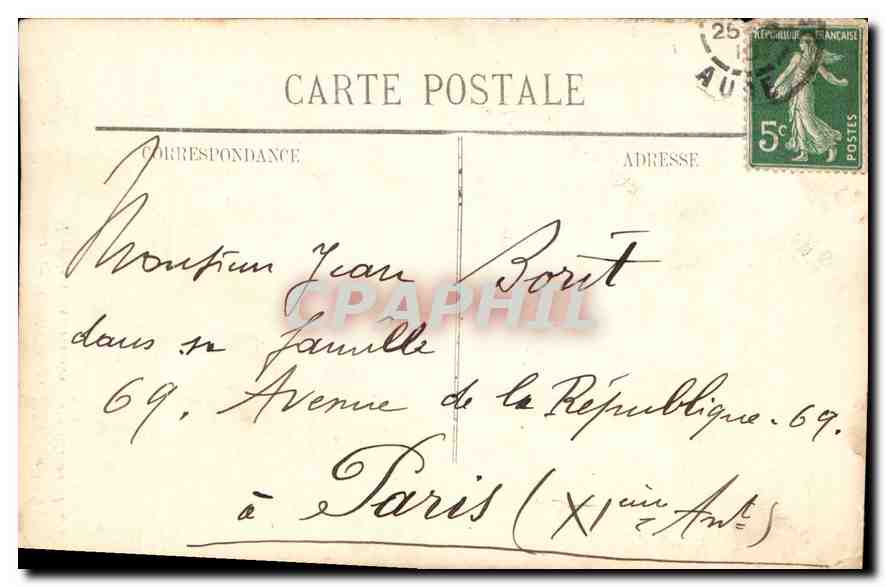 CARTE POSTALE
CORRESPONDANCE
ADRESSE
25
AUBE
RÉPUBLIQUE FRANÇAISE
5c
POSTES
Monsieur Jean Borit
dans sa famille
69. Avenue de la République. 69.
à Paris (XIème Arrt)
CPAPHIL